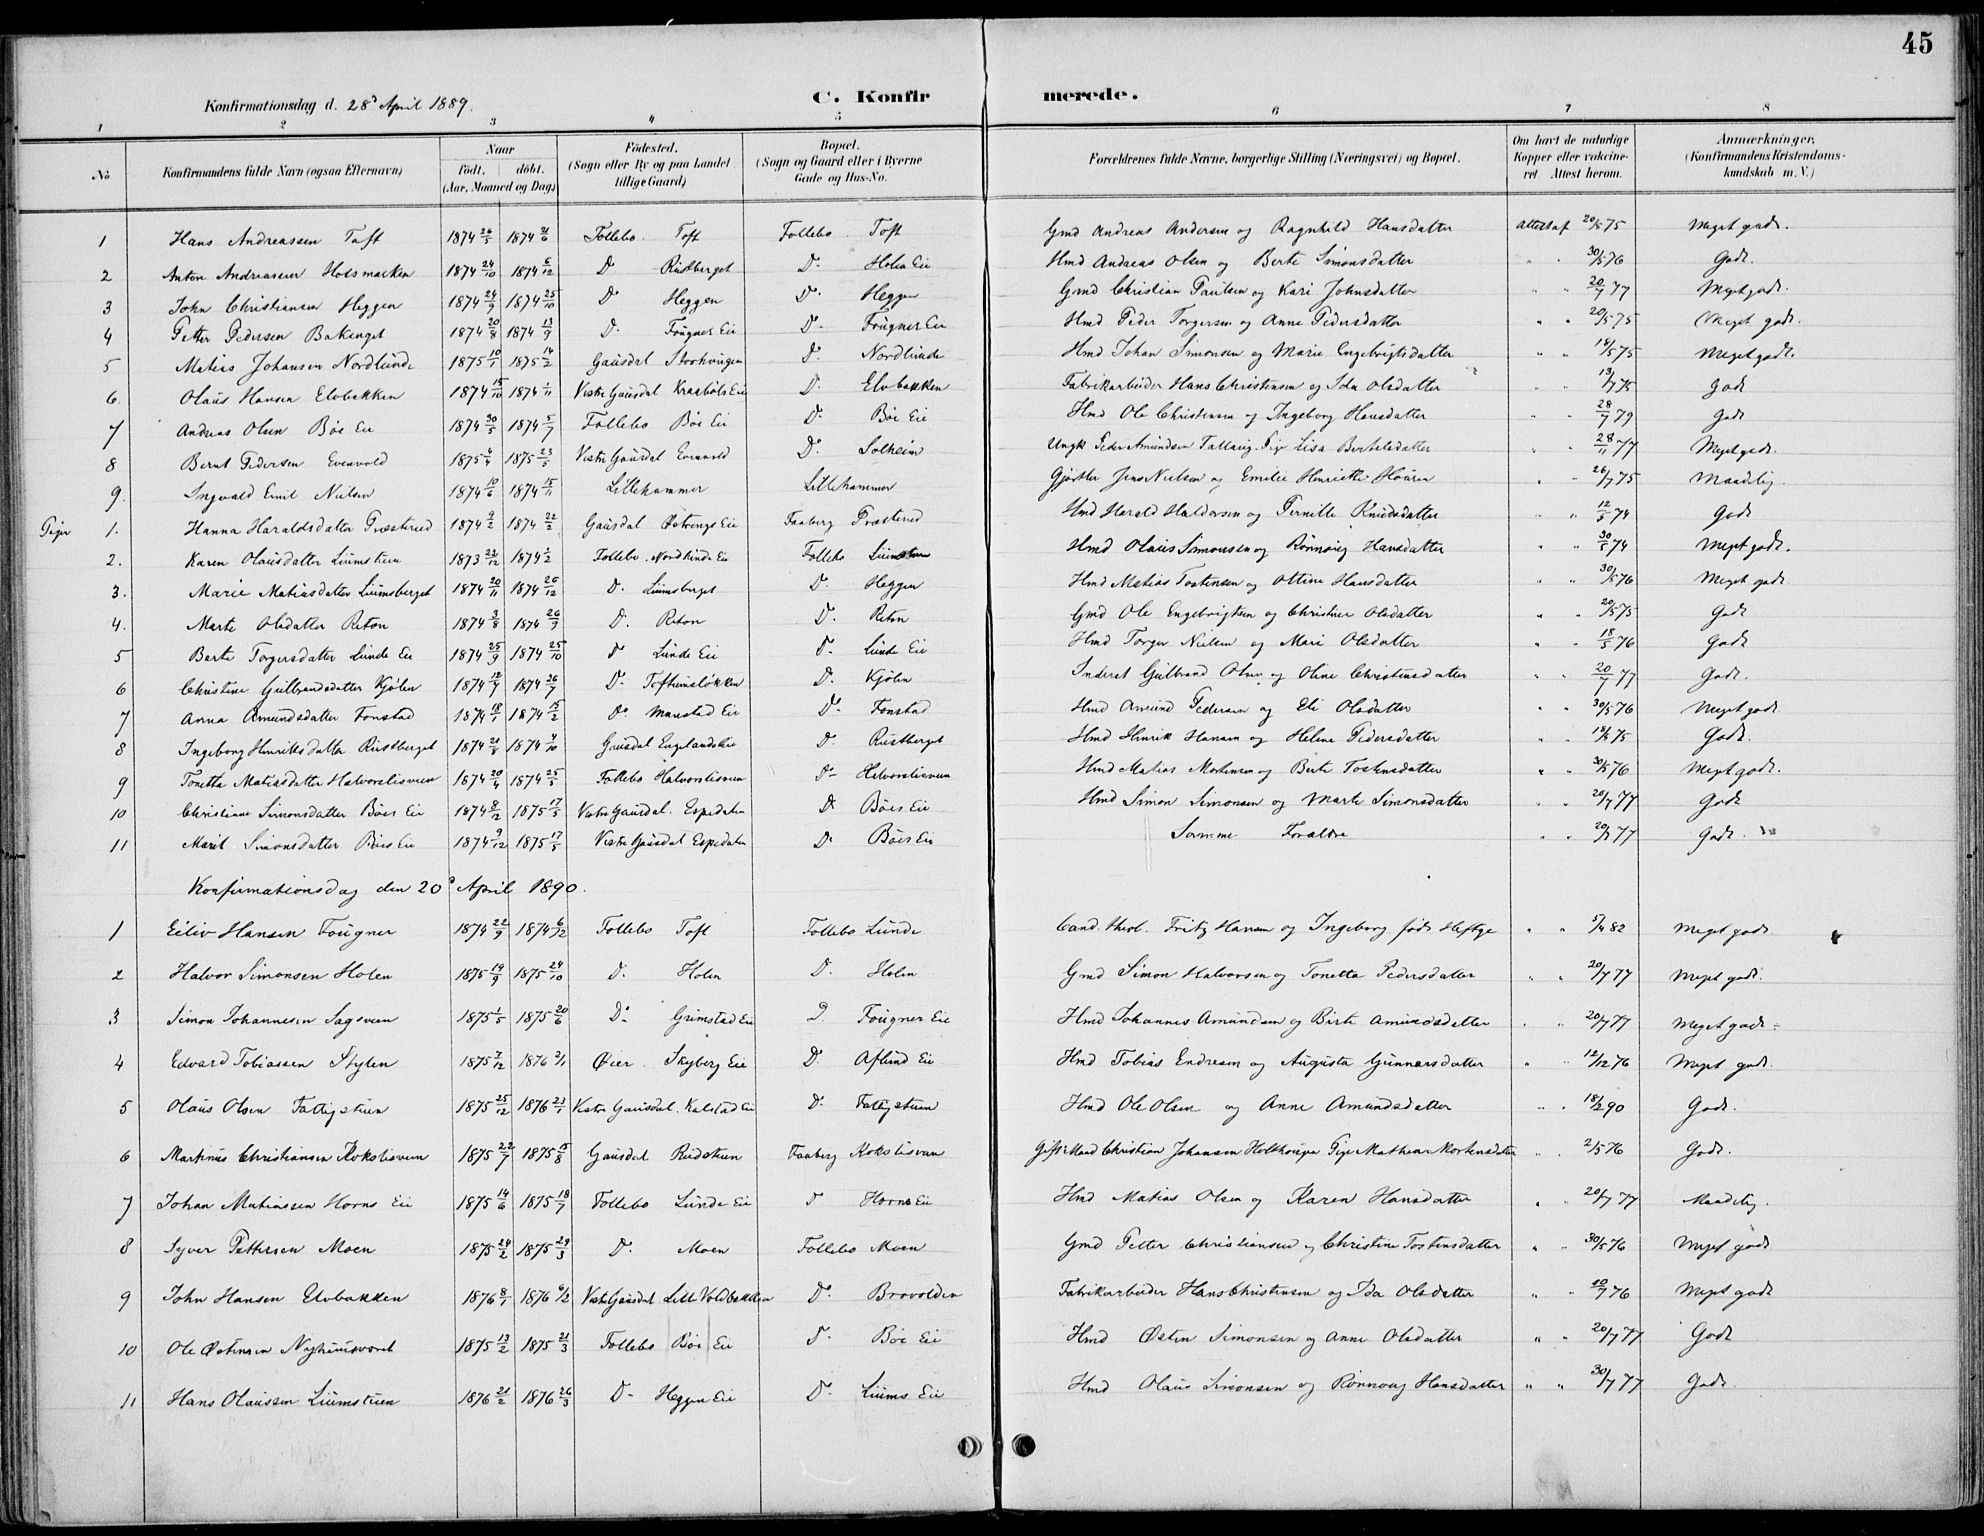 45
Konfirmationsdag d. 28de April 1889.
C. Konfirmerede.
1 2 3 4 5 6 7 8
No
Konfirmandens fulde Navn (ogsaa Efternavn)
Naar
født. døbt.
(Aar, Maaned og Dag)
Fødested.
(Sogn eller By og paa Landet tillige Gaard)
Bopæl.
(Sogn og Gaard eller i Byerne Gade og Hus-No.
Forældrenes fulde Navne, borgerlige Stilling (Næringsvei) og Bopæl.
Om havt de naturlige Kopper eller vakcineret. Attest herom.
Anmærkninger.
(Konfirmandens Kristendomskundskab m. V.)
1 Hans Andreassen Toft 1874 26/5 1874 21/6 Follebo Toft Follebo Toft Gmd Andreas Andersen og Ragnhild Hansdatter Attest af 20/5 75 Meget godt.
2 Anton Andreassen Holsmarken 1874 24/10 1874 6/12 D Rustberget D. Holen Eie Hmd Andreas Olsen og Berte Simonsdatter " " 30/5 76 Godt.
3 John Christiansen Heggen 1874 24/9 1874 25/10 D Heggen D. Heggen Gmd Christian Paulsen og Kari Johnsdatter " " 20/7 77 Meget godt.
4 Petter Pedersen Bakenget 1874 20/8 1874 13/9 D. Fougner Eie D. Fougner Eie Hmd Peder Torgersen og Anne Pedersdatter " " 20/5 75 Meget godt.
5 Matias Johansen Nordlunde 1875 10/1 1875 14/2 Gausdal D. Nordlunde Hmd Johan Simonsen og Marie Engebrigtsdatter " " 18/5 75 Meget godt.
6. Olaus Hansen Elvbakken 1874 15/10 1874 1/11 Vestre Gausdal Kraabøls Eie D. Elvbakken Fabrikarbeider Hans Christensen og Ida Olsdatter " " 13/7 75 Godt
7 Andreas Olsen Bøe Eie 1874 30/5 1874 5/7 Follebo Bøe Eie D. Bøe Eie Hmd Ole Christensen og Ingeborg Hansdatter " " 28/7 79 Godt
8 Bernt Pedersen Evenvold 1875 4/4 1875 23/5 Vestre Gausdal Evenvold D. Solheim Ungk Peder Amundsen Pige Lisa Bertelsdatter " " 28/11 77 Meget godt.
9. Ingvald Emil Nielsen 1874 10/6 1874 15/11 Lillehammer Lillehammer Gjørtler Jens Nielsen og Emilie Henriette " " 26/7 75 Maadelig.
Piger 1. Hanna Haraldsdatter Præsterud 1874 9/2 1874 22/2 Gausdal Østrengs Eie Faaberg Præsterud Hmd Harald Haldorsen og Pernille Knudsdatter " " 12/5 74 Godt
2. Karen Olausdatter Liumstuen 1873 22/12 1874 1/2 Follebo Nordlunde Eie Follebo Liumstuen Hmd Olaus Simonsen og Rønnoug Hansdatter " " 30/5 74 Meget godt.
3. Marie Matiasdatter Liumsberget 1874 20/11 1874 26/12 D. Liumsberget D. Heggen Hmd Matias Tostensen og Ottine Hansdatter " " 30/5 76 Meget godt.
4. Marte Olsdatter Reton 1874 3/8 1874 26/9 D. Reton D. Reton Gmd Ole Engebrigtsen og Christine Olsdatter " " 20/5 75 Godt
5 Berte Torgersdatter Lunde Eie 1874 25/9 1874 25/10 D Lunde Eie D. Lunde Eie Hmd Torger Nielsen og Mari Olsdatter " " 18/5 76 Godt
6 Christine Gulbrandsdatter Kjølen 1874 1874 26/7 D. Toftumsløkken D. Kjølen Inderst Gulbrand Olsen og Oline Christensdatter " " 20/7 77 Godt.
7 Anna Amundsdatter Fonstad 1874 18/1 1874 15/2 D. Manstad Eie D. Fonstad Hmd Amund Pedersen og Eli Olsdatter " " 30/5 76 Meget godt.
8 Ingeborg Henriksdatter Rustberget 1874 1874 4/10 Gausdal Engelands Eie D. Rustberget Hmd Henrik Hansen og Helene Pedersdatter " " 75 Godt.
9 Tonetta Matiasdatter Halvorslisveen 1874 20/4 1874 25/5 Follebo Halvorslisveen D. Halvorslisveen Hmd Matias Mortensen og Berte Tostensdatter " " 30/5 76 Meget godt.
10 Christiane Simonsdatter Bøes Eie 1874 8/12 1875 17/5 Vestre Gausdal. Espedalen D. Bøes Eie Hmd Simon Simonsen og Marte Simonsdatter " " 20/7 77 Godt
11 Marit Simonsdatter Bøes Eie 1874 9/12 1875 17/5 Vestre Gausdal Espedalen D. Bøes Eie Samme Forældre " " 20/7 77 Godt.
Konfirmationsdag den 20de April 1890.
1 Eiliv Hansen Fougner 1874 22/9 1874 6/12 Follebo Toft Follebo Lunde Cand. theol. Fritz Hansen og Ingeborg født Heftye " " 5/4 82 Meget godt
2 Halvor Simonsen Holen 1875 19/9 1875 24/10 D. Holen D. Holen Gmd Simon Halvorsen og Tonetta Pedersdatter " " 20/7 77 Meget godt.
3 Simon Johannesen Sagsveen 1875 1/5 1875 20/6 D. Grimstad Eie D. Fougner Eie Hmd Johannes Amundsen og Birte Amundsdatter " " 20/7 77 Meget godt.
4 Edvard Tobiassen Stylen 1875 7/12 1876 2/1 Øier Skyberg Eie D. Aflund Eie Hmd Tobias Endresen og Augusta Gunnarsdatter " " 12/12 76 Meget godt.
5 Olaus Olsen Fattigstuen 1875 25/12 1876 23/1 Vestre Gausdal. Kalstad Eie D. Fattigstuen Hmd Ole Olsen og Anne Amundsdatter " " 18/2 90 Godt.
6 Martinus Christiansen Kokslisveen 1875 22/7 1875 15/8 Gausdal Rudstuen Faaberg Kokslisveen Gift Mand Christian Johansen Pige Mathea Mortensdatter " " 2/5 76 Godt.
7 Johan Matiassen Horns Eie 1875 14/6 1875 18/7 Follebo Lunde Eie D Horns Eie Hmd Matias Olsen og Karen Hansdatter " " 20/7 77 Maadelig.
8 Syver Pettersen Moen 1875 24/2 1875 29/3 D. Moen Follebo Moen Gmd Petter Christiansen og Christine Tostensdatter " " 30/5 76 Meget godt
9 John Hansen Elvbakken 1876 8/1 1876 6/2 Vestre Gausdal Lille Voldbakken D. Brovolden Fabrikarbeider Hans Christensen og Ida Olsdatter " " 10/7 76 Meget godt
10 Ole Østensen Nyhuusvoret 1875 13/2 1875 21/3 Follebo Bøe Eie D. Bøe Eie Hmd Østen Simonsen og Anne Olsdatter " " 20/7 77 Godt
11 Hans Olaussen Liumstuen 1876 21/2 1876 26/3 D. Heggen Eie D. Liums Eie Hmd Olaus Simonsen og Rønnoug Hansdatter " " 30/7 77 Godt.